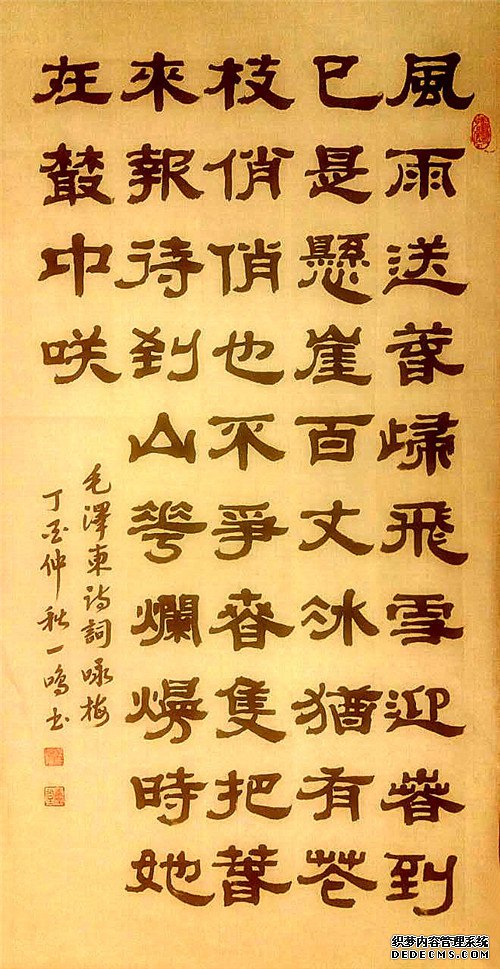 風雨送春歸飛雪迎春到
已是懸崖百丈冰猶有花
枝俏俏也不爭春隻把春
來報待到山花爛熳時她
在叢中咲
毛澤東诗詞咏梅
丁酉仲秋一鳴书
织梦内容管理系统
DEDECMS.COM